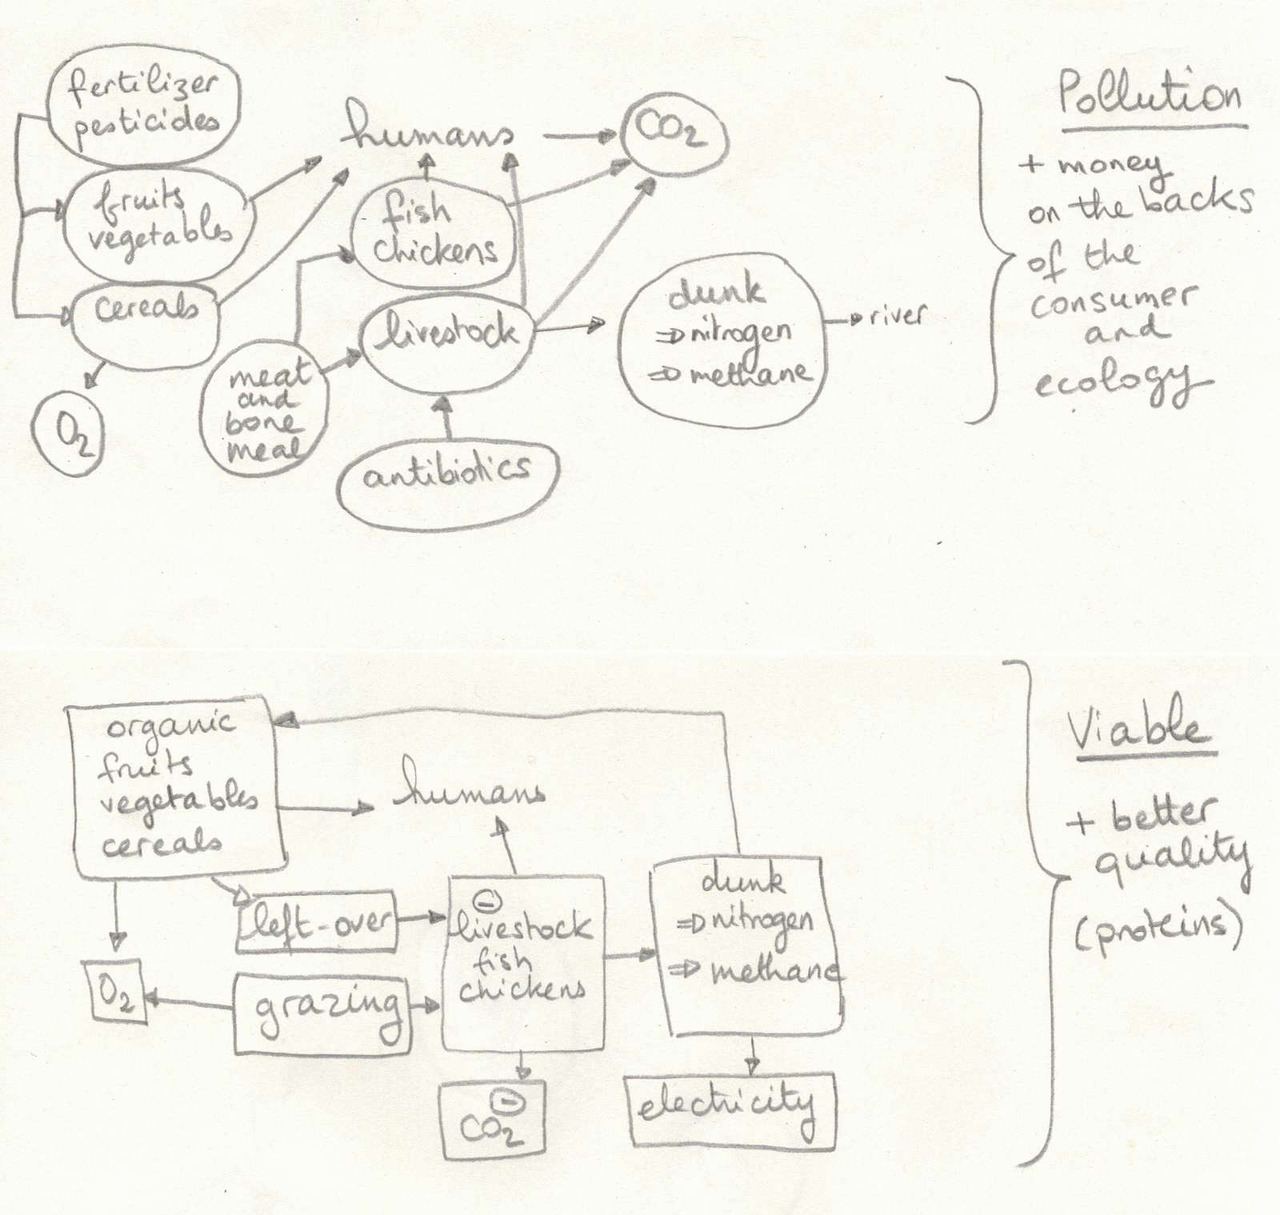 fertilizer
pesticides
fruits
vegetables
cereals
O2
humans
fish
chickens
livestock
meat
and
bone
meal
antibiotics
CO2
dunk
⇒ nitrogen
⇒ methane
river
Pollution
+ money
on the backs
of the
consumer
and
ecology
organic
fruits
vegetables
cereals
humans
left-over
grazing
O2
⊖
livestock
fish
chickens
CO2 ⊖
dunk
⇒ nitrogen
⇒ methane
electricity
Viable
+ better
quality
(proteins)